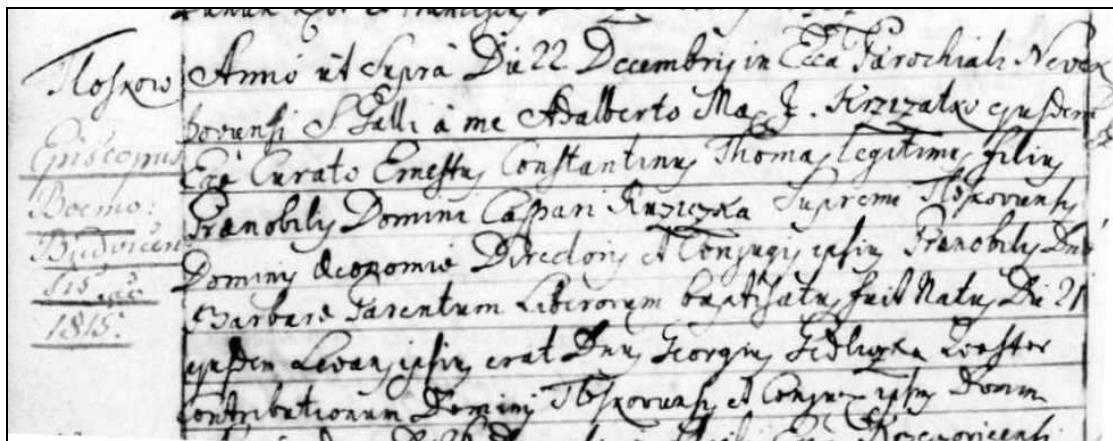 Tloskow
Episcopus
Boemo:
Budvicen
sis
1815.
Anno ut Supra Die 22 Decembris in Ecca Parochiali Nevek
lovensi S Galli à me Adalberto Krzizatko ejusdem
Eccae Curato Ernestus Constantinus Thomas legitimus filius
Praenobilis Domini Caspari Ruziczka Supremi Tloskoviensis
Dominii Oeconomiae Directoris et Conjugis ipsius Praenobilis Dnae
Barbarae Parentum Liberorum baptisatus fuit Natus Die 21
ejusdem Levans ipsius erat Dnus Georgius
Contributionum Dominii Tloskoviensis et Conjux ipsius Domina